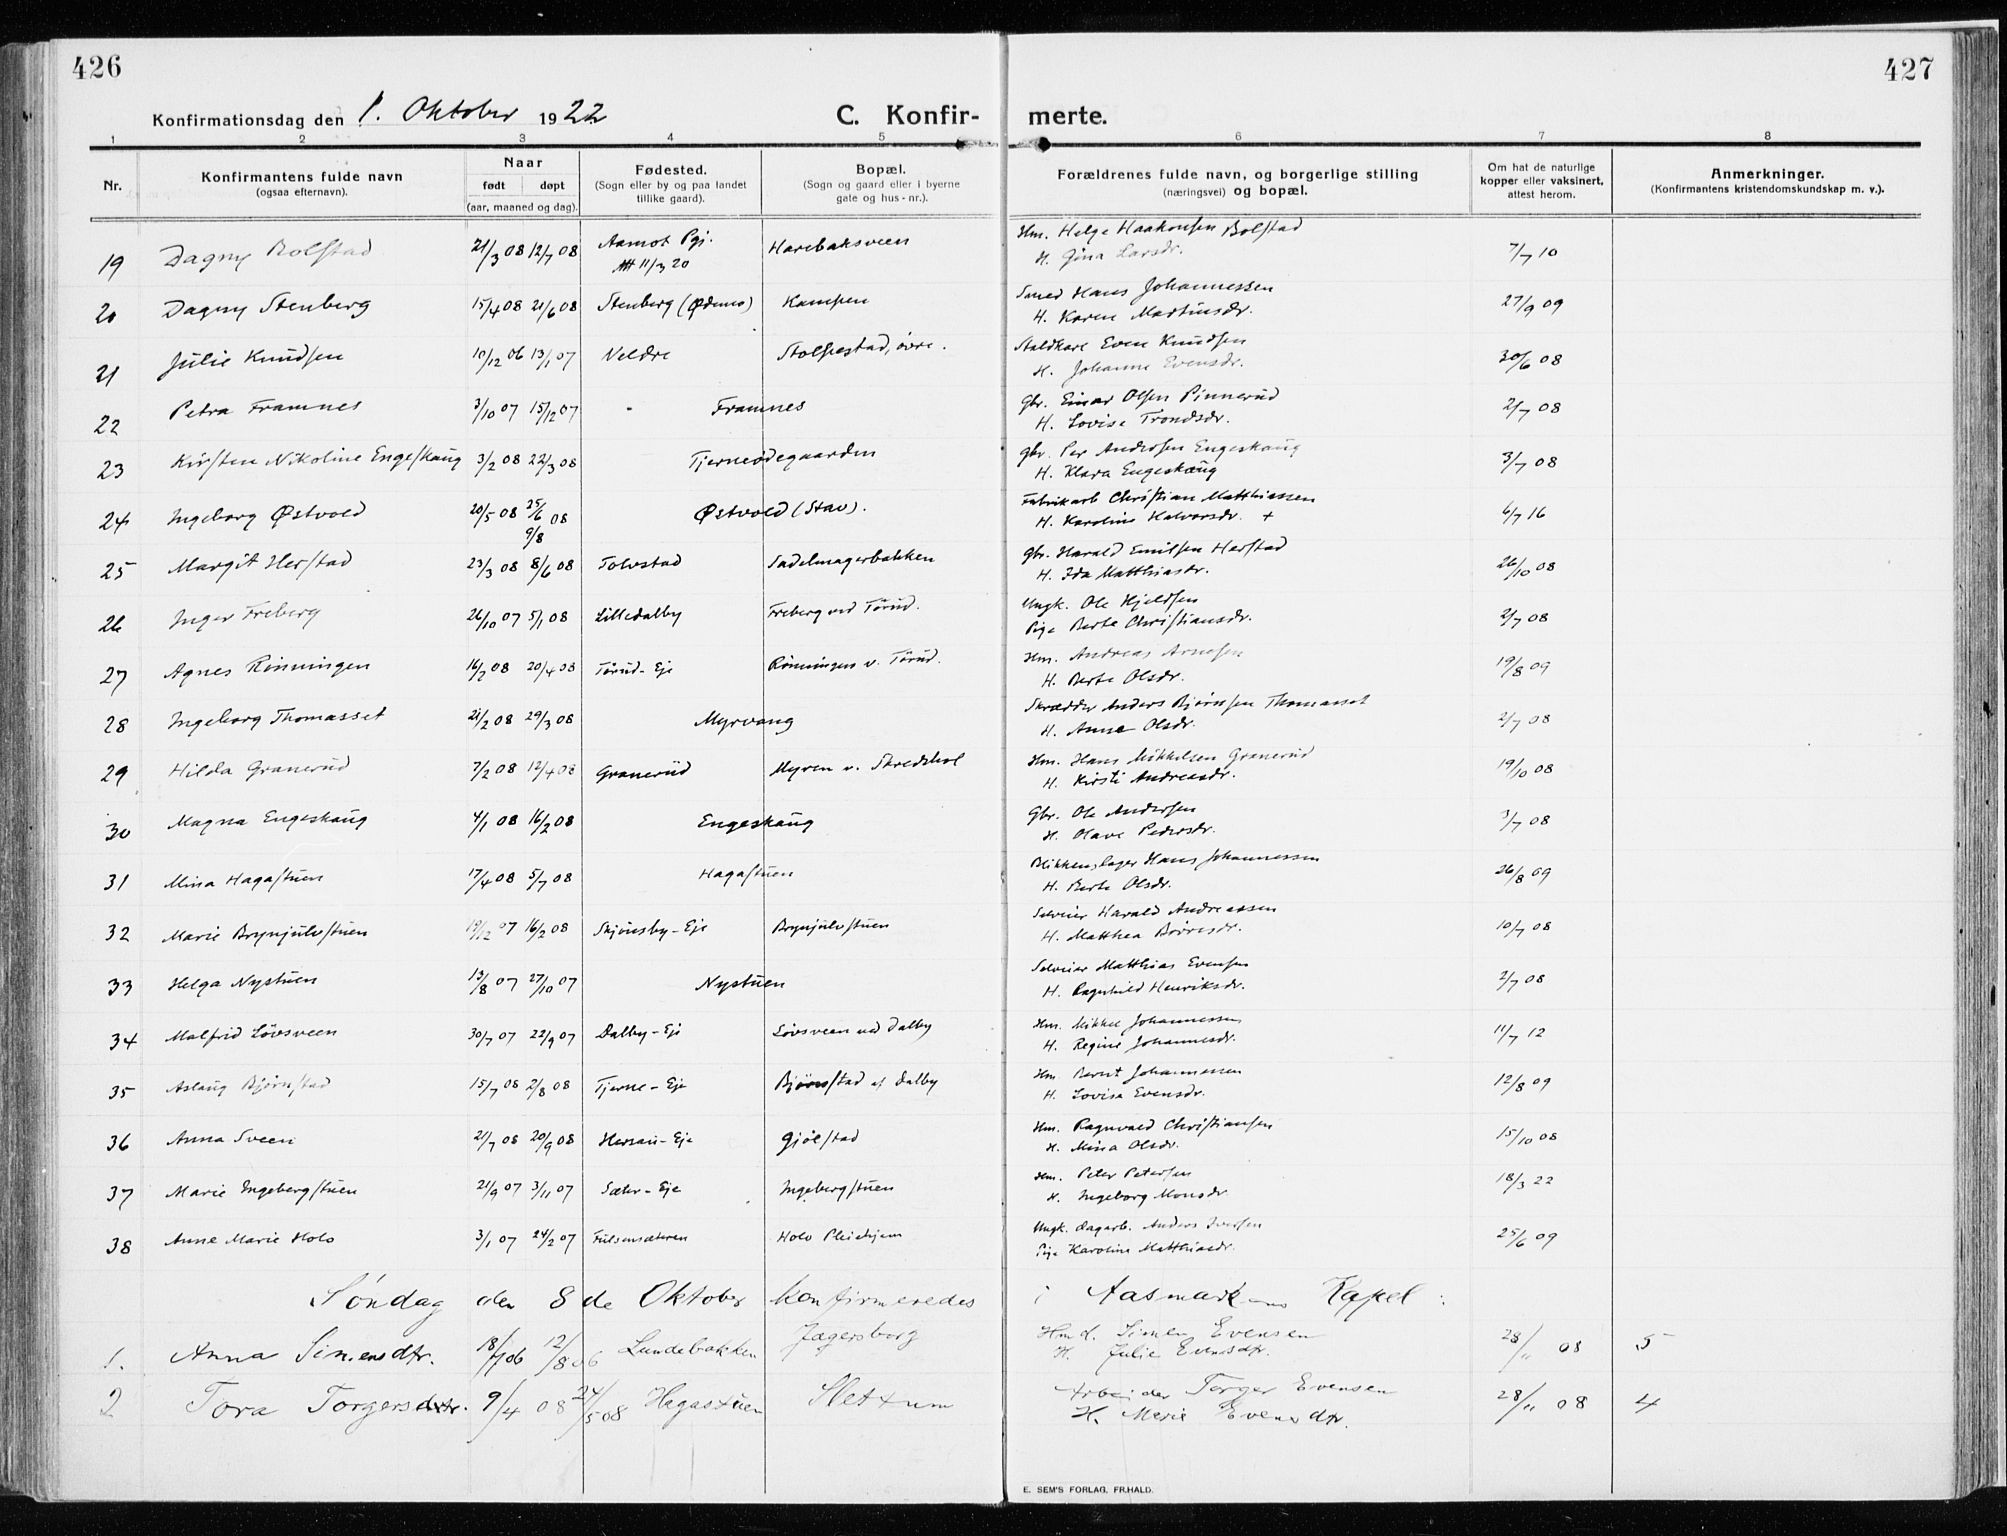 426
427
Konfirmationsdag den 1. Oktober 1922
C. Konfir-
merte.
1 2 3 4 5 6 7 8
Nr.
Konfirmantens fulde navn
(ogsaa efternavn).
Naar
født døpt
(aar, maaned og dag).
Fødested.
(Sogn eller by og paa landet
tillike gaard).
Bopæl.
(Sogn og gaard eller i byerne
gate og hus-nr.).
Forældrenes fulde navn, og borgerlige stilling
(næringsvei) og bopæl.
Om hat de naturlige
kopper eller vaksinert,
attest herom.
Anmerkninger.
(Konfirmantens kristendomskundskap m. v.).
19 Dagny Bolstad 21/3 08 12/7 08 Aamot Pgj. Att 11/3 20 Harebaksveen Hm. Helge Haakonsen Bolstad
H. Gina Larsdr. 7/7 10
20 Dagny Stenberg 15/4 08 21/6 08 Stenberg (Ødemo) Kampen Smed Hans Johannessen
H. Karen Martinsdr. 27/9 09
21 Julie Knudsen 10/12 06 13/1 07 Veldre Stolpestad, øvre. Staldkarl Even Knudsen
H. Johanne Evensdr. 30/6 08
22 Petra Framnes 3/10 07 15/12 07 Framnes Gbr. Einar Olsen Pinnerud
H. Lovise Trondsdr. 2/7 08
23 Kirsten Nikoline Engeskaug 3/2 08 22/3 08 Tjerneødegaarden Gbr. Per Andersen Engeskaug
H. Klara Engeskaug 3/7 08
24 Ingeborg Østvold 20/5 08 25/6 08 9/8 Østvold (Stav). Fabrikarb Christian Matthiassen
H. Karoline Halvorsdr. + 6/7 16
25 Margit Herstad 23/3 08 8/6 08 Tolvstad Sadelmagerbakken Gbr. Harald Emilsen Herstad
H. Ida Matthiasdr. 26/10 08
26 Inger Freberg 26/10 07 5/1 08 Lilledalby Freberg ved Tørud. Ungk. Ole Hjeldsen
Pige Berte Christiansdr. 2/7 08
27 Agnes Rønningen 16/2 08 20/4 08 Tørud-Eje Rønningen v. Tørud. Hm. Andreas Arnesen
H. Berte Olsdr. 19/8 09
28 Ingeborg Thomasset 21/2 08 29/3 08 Myrvang Skrædder Anders Bjørnsen Thomasset
H. Anne Olsdr. 2/7 08
29 Hilda Granerud 7/2 08 12/4 08 Granerud Myren v. Skredshol Hm. Hans Mikkelsen Granerud
H. Kirsti Andreasdr. 19/10 08
30 Magna Engeskaug 4/1 08 16/2 08 Engeskaug Gbr. Ole Andersen
H. Olave Pedersdr. 3/7 08
31 Mina Hagastuen 17/4 08 5/7 08 Hagastuen Blikkenslager Hans Johannessen
H. Berte Olsdr. 26/8 09
32 Marie Brynjulvstuen 19/12 07 16/2 08 Skjønsby-Eje Brynjulvstuen Selveier Harald Andreassen
H. Matthea Børresdr. 10/7 08
33 Helga Nystuen 13/8 07 27/10 07 Nystuen Selveier Matthias Evensen
H. Ragnhild Henriksdr. 2/7 08
34 Malfrid Løvsveen 30/7 07 22/9 07 Dalby-Eje Løvsveen ved Dalby Hm. Mikkel Johannessen
H. Regine Johannesdr. 11/7 12
35 Aslaug Bjørnstad 15/7 08 2/8 08 Tjerne-Eje Bjørnstad af Dalby Hm. Bernt Johannessen
H. Lovise Evensdr. 12/8 09
36 Anna Sveen 21/7 08 20/9 08 Hersau-Eje Gjølstad Hm. Ragnvald Christiansen
H. Mina Olsdr. 15/10 08
37 Marie Ingebergstuen 21/9 07 3/11 07 Sæter-Eje Ingebergstuen Hm. Peter Petersen
H. Ingeborg Monsdr. 18/3 22
38 Anne Marie Holo 3/1 07 24/2 07 Fulsensæteren Holo Pleiehjem Ungk. dagarb. Anders Iversen
Pige Karoline Matthiasdr. 25/6 09
Søndag den 8de Oktober konfirmeredes i Aasmarkens Kapel:
1. Anna Simensdtr. 18/7 06 12/8 06 Lundebakken Jægersborg Hmd. Simen Evensen
H. Julie Evensdtr. 28/11 08 5
2 Tora Torgersdtr. 9/4 08 24/5 08 Hagastuen Slettum Arbeider Torger Evensen
H. Marie Evensdtr. 28/11 08 4
E. SEM'S FORLAG, FR.HALD.